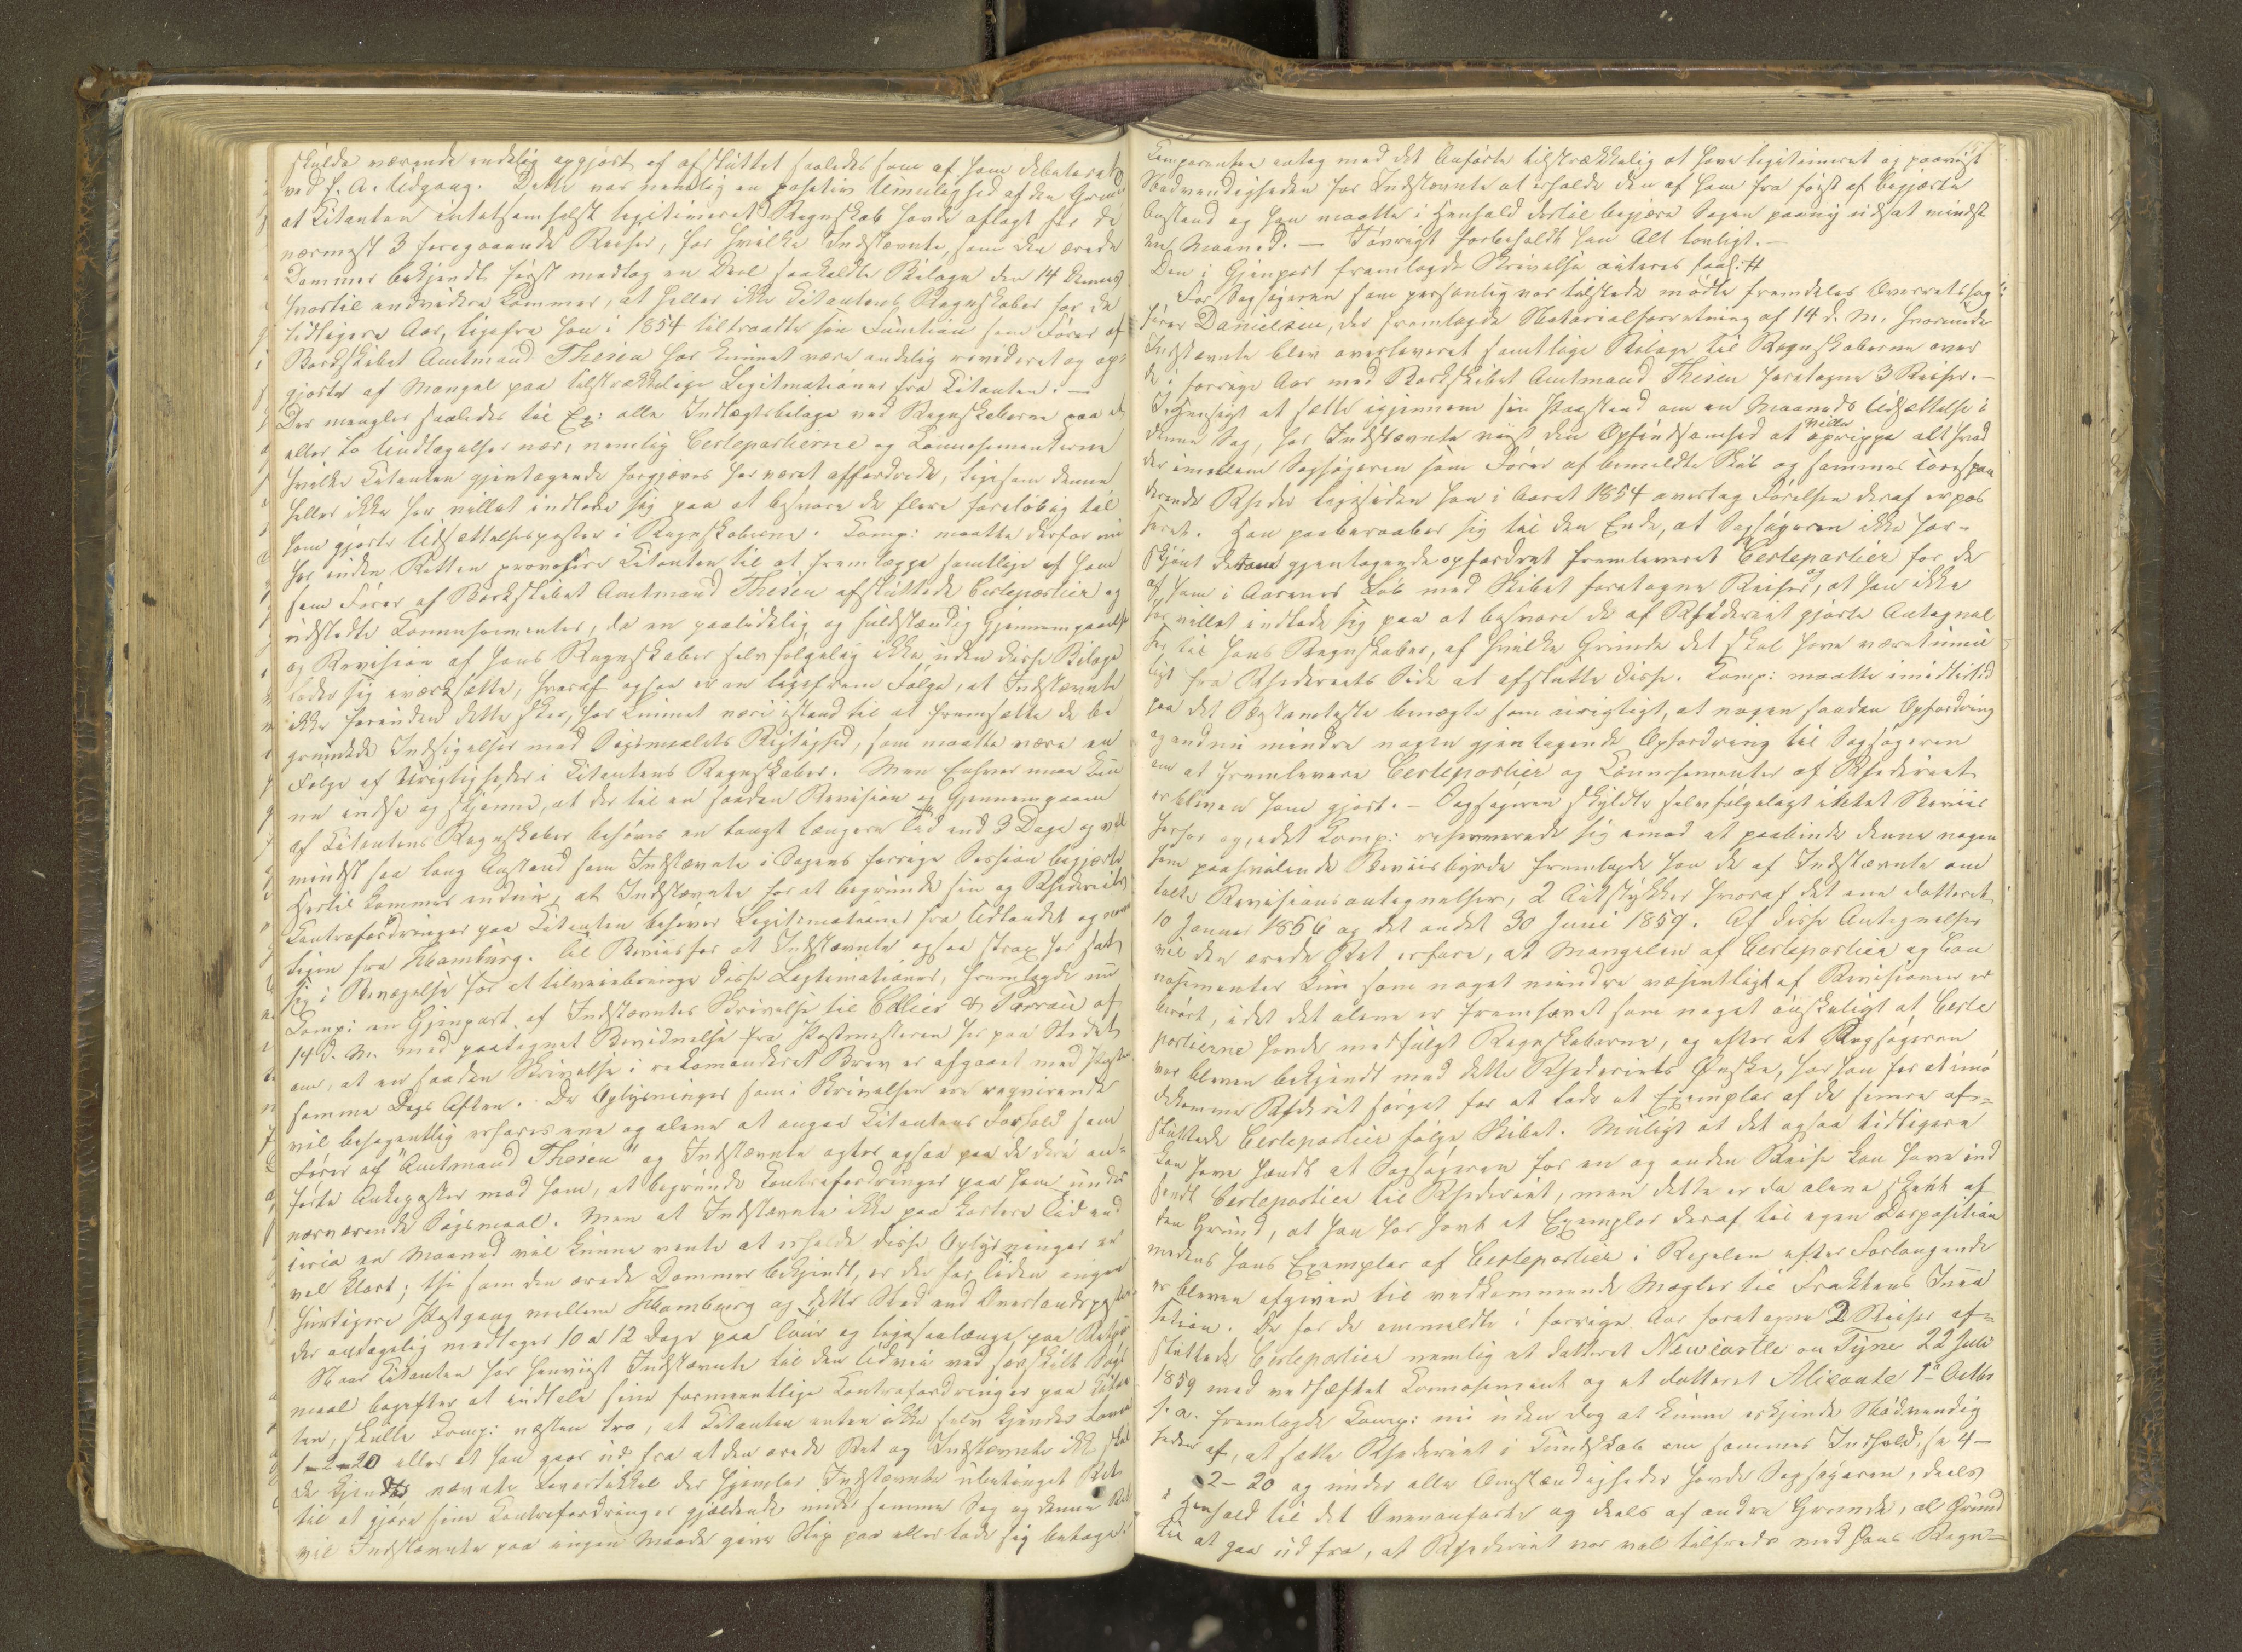 skulde værende endelig opgjort af afsluttet saaledes som af ham debuteret
ved f. A. Udgang. Dette var nemlig en positiv Umulighed af den Grund
at Citanten intetsomhelst legitimeret Regnskab havde aflagt for de
nærmest 3 foregaaende Reiser, for hvilke Indstævnte, som den ærede
Dommer bekjendt først modtog en Deel saakaldte Bilage den 14 dennes
hvortil endvidere kommer, at heller ikke Citantens Regnskaber for de
tidligere Aar, ligefra han i 1854 tiltraadte sin Function som Fører af
Barkskibet Amtmand Thesen har kunnet være endelig revideret og op-
gjorte af Mangel paa tilstrækkelige Legitimationer fra Citanten. —
Der mangler saaledes til Ex: alle Indtægtsbilage ved Regnskaberne paa et
eller to Undtagelser nær, nemlig Certepartierne og Connosementerne
hvilke Citanten gjentagende forgjæves har været affordrede, ligesom denne
heller ikke har villet indlade sig paa at besvare de flere foreløbig til
ham gjorte Udsættelsesposter i Regnskaberne. Comp: maatte derfor nu
her inden Retten provocere Citanten til at fremlægge samtlige af ham
som Fører af Barkskibet Amtmand Thesen afsluttede Certepartier og
udstedte Connossementer, da en paalidelig og fuldstændig Gjennemgaaelse
og Revision af hans Regnskaber selvfølgelig ikke uden disse Bilage
lader sig iværksætte, hvoraf ogsaa er en ligefrem Følge, at Indstævnte
ikke forinden dette skeer, har kunnet være istand til at fremsætte de be
grundede Indsigelser mod Søgsmaalets Rigtighed, som maatte være en
Følge af Urigtigheder i Citantens Regnskaber. Men Enhver maa kun
ne indse og skjønne, at der til en saadan Revision og Gjennemgaaen
af Citantens Regnskaber behøves en langt længere Tid end 3 Dage og vel
mindst saa lang Anstand som Indstævnte i Sagens forrige Session begjærte
Hertil kommer endnu, at Indstævnte for at begrunde sin og Rhederiets
Contrafordringer paa Citanten behøver Legitimationer fra Udlandet og navn
ligen fra Hamburg. Til Beviis for at Indstævnte ogsaa strax har sat
sig i Bevægelse for at tilveiebringe disse Legitimationer, fremlagde nu
Comp: en Gjenpart af Indstævntes Skrivelse til Ellier & Parrau af
14 d. M. med paategnet Bevidnelse fra Postmesteren her paa Stedet
om, at en saadan Skrivelse i rekomanderet Brev er afgaaet med Posten
samme Dags Aften. De Oplysninger som i Skrivelsen ere reqvirerede
vil behageligen erfares ene og alene at angaa Citantens Forhold som
Fører af "Amtmand Thesen" og Indstævnte agter ogsaa paa de deri an-
førte Ankeposter mod ham, at begrunde Contrafordringer paa ham under
nærværende Søgsmaal. Men at Indstævnte ikke paa kortere Tid end
circa en Maaned vil kunne vente at erholde disse Oplysninger er
vel klart; thi som den ærede Dommer bekjendt, er der for tiden ingen
hurtigere Postgang mellem Hamburg og dette Sted end Overlandsposten
der andagelig medtager 10 a 12 Dage paa Touer og ligesaalænge paa Retur
Naar Citanten har henviist Indstævnte til den Udvei ved særskilt Søgs
maal bagefter at indtale sine formeentlige Contrafordringer paa Citan
ten, skulde Comp: næsten tro, at Citanten enten ikke selv kjender Lovens
1-2-20 eller at han gaar ud fra at den ærede Ret og Indstævnte ikke skal
de kjendte nævnte Lovartikkel der hjemler Indstævnte ubetinget Ret
til at gjøre sine Contrafordringer gjældende under samme Sag og denne Ret
vil Indstævnte paa ingen Maade give Slip paa eller lade sig betage.
Comparenten antog med det Anførte tilstrækkelig at have legitimeret og paaviist
Nødvendigheden for Indstævnte at erholde den af ham fra først af begjærte
Anstand og han maatte i Henhold dertil begjære Sagen paany udsat mindst
en Maaned. — Iøvrigt forbeholdt han Alt lovligt. —
Den i Gjenpart fremlagde Skrivelse acteres saal: #
For Sagsøgeren som personlig var tilstede mødte fremdeles Overretssag-
fører Danielsen, der fremlagde Notarialforretning af 14 d. M. hvorunde
Indstævnte blev overleveret samtlige Bilage til Regnskaberne over
de i forrige Aar med Barkskibet Amtmand Thesen foretagne 3 Reiser. —
I Hensigt at sætte igjennem sin Paastand om en Maaneds Udsættelse i
denne Sag, har Indstævnte viist den Opfindsomhed at ville oprippe alt hvad
der imellem Sagsøgeren som Fører af bemeldte Skib og sammes Corespon
derende Rheder ligesiden han i Aaret 1854 overtog Førelsen deraf er pas
seret. Han paaberaaber sig til den Ende, at Sagsøgeren ikke har-
skjønt dertil gjentagende opfordret fremleveret Certepartier for de
af ham i Aarenes Løb med Skibet foretagne Reiser, og at han ikke
har villet indlade sig paa at besvare de af Rhederiet gjorte Antegnel
ser til hans Regnskaber, af hvilke Grunde det skal have været umu
ligt fra Rhederiets Side at afslutte disse. Comp: maatte imidlertid
paa det Bestemteste benægte som urigtigt, at nogen saadan Opfordring
og endnu mindre nogen gjentagende Opfordring til Sagsøgeren
om at fremlevere Certepartier og Connosementer af Rhederiet
er bleven ham gjort. — Sagsøgeren skyldte selvfølgeligt intetet Beviis
herfor og, idet Comp: reserverede sig imod at paabinde denne nogen
ham paahvilende Beviisbyrde fremlagde han de af Indstævnte om
talte Revisionsantegnelser, 2 Actstykker hvoraf det ene datteret
10 Januar 1856 og det andet 30 Juni 1859. Af disse Antegnelser
vil den ærede Ret erfare, at Mangelen af Certepartier og Con
nosementer kun som noget mindre væsentligt af Revisionen er
berørt, idet det alene er fremhævet som noget ønskeligt at Certe
partierne havde medfulgt Regnskaberne, og efter at Sagsøgeren
var bleven bekjendt med dette Rhederiets Ønske, har han for at imø
dekomme Rhederiet sørget for at lade et Exemplar af de senere af-
sluttede Certepartier følge Skibet. Muligt at det ogsaa tidligere
kan have hændt at Sagsøgeren for en og anden Reise kan have ind
sendt Certepartier til Rhederiet, men dette er da alene skeet af
den Grund, at han har havt et Exemplar deraf til egen Disposition
medens hans Exemplar af Certepartier i Regelen efter Forlangende
er bleven afgiven til vedkommende Mægler til Fragtens Inca
sation. De for de ommeldte i forrige Aar foretagne 2 Reiser af-
sluttede Certepartier nemlig et datteret Newcastle on Tyne 22 Juli
1859 med vedhæftet Connosement og et datteret Alicante 1ste Octbr
s. a. fremlagde Comp: nu uden dog at kunne erkjende Nødvendig
heden af, at sætte Rhederiet i Kundskab om sammes Indhold, se 4-
2-20 og under alle Omstændigheder havde Sagsøgeren, deels
i Henhold til det Ovenanførte og deels af andre Grunde, al Grund
til at gaa ud fra, at Rhederiet var vel tilfreds med hans Regn-